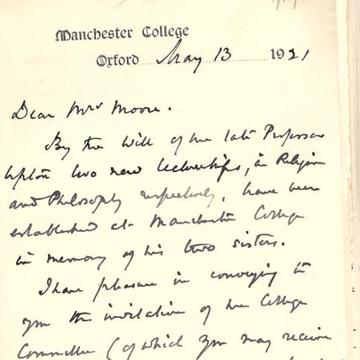 Manchester College
Oxford May 13 1921
Dear Mrs Moore.
By the will of the late Professor
Upton two new lectureships, in Religion
and Philosophy respectively, have been
established at Manchester College
in memory of his two sisters.
I have pleasure in conveying to
you the invitation of the College
Committee (of which you may receive